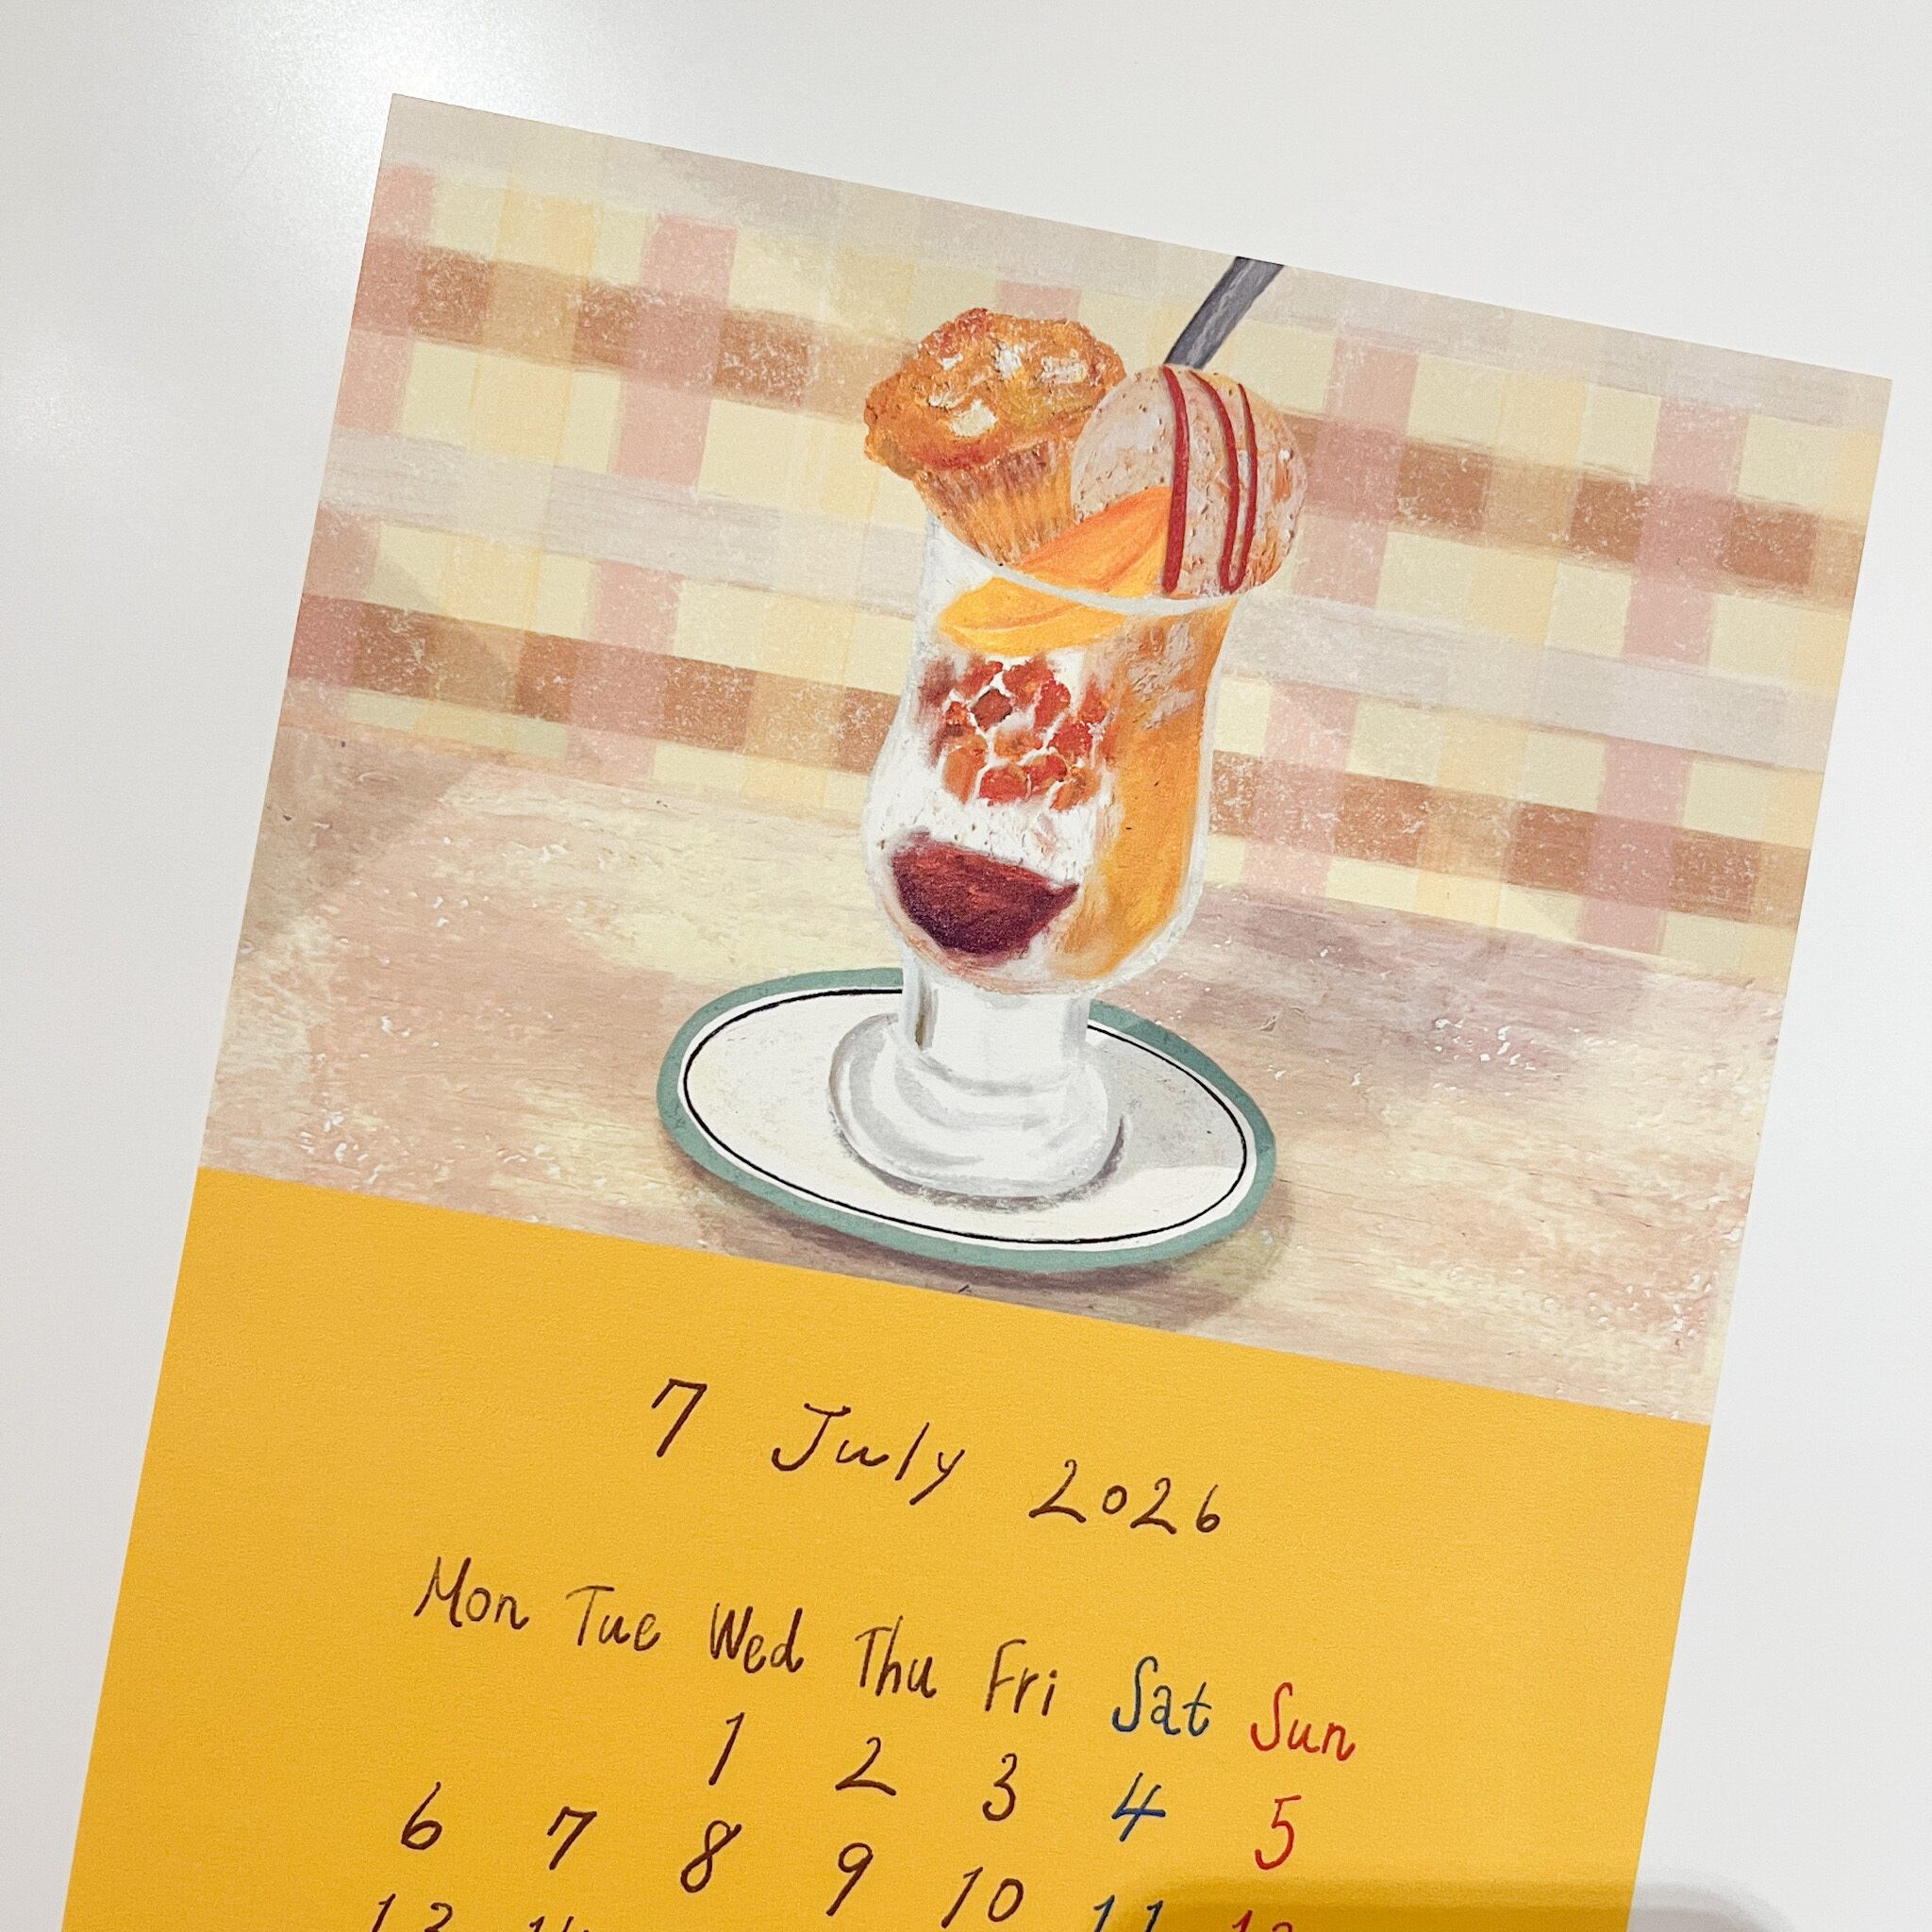 7 July 2026
Mon Tue Wed Thu Fri Sat Sun
1 2 3 4 5
6 7 8 9 10 11 12
13 14